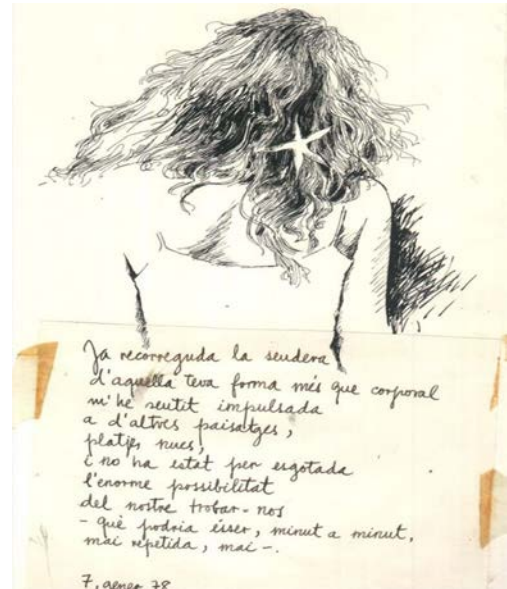 Ja recorreguda la sendera
d'aquella teva forma més que corporal
m'he sentit impulsada
a d'altres paisatges,
platges nues,
i no ha estat per esgotada
l'enorme possibilitat
del nostre trobar-nos
- què podria ésser, minut a minut,
mai repetida, mai -.
7, gener 78